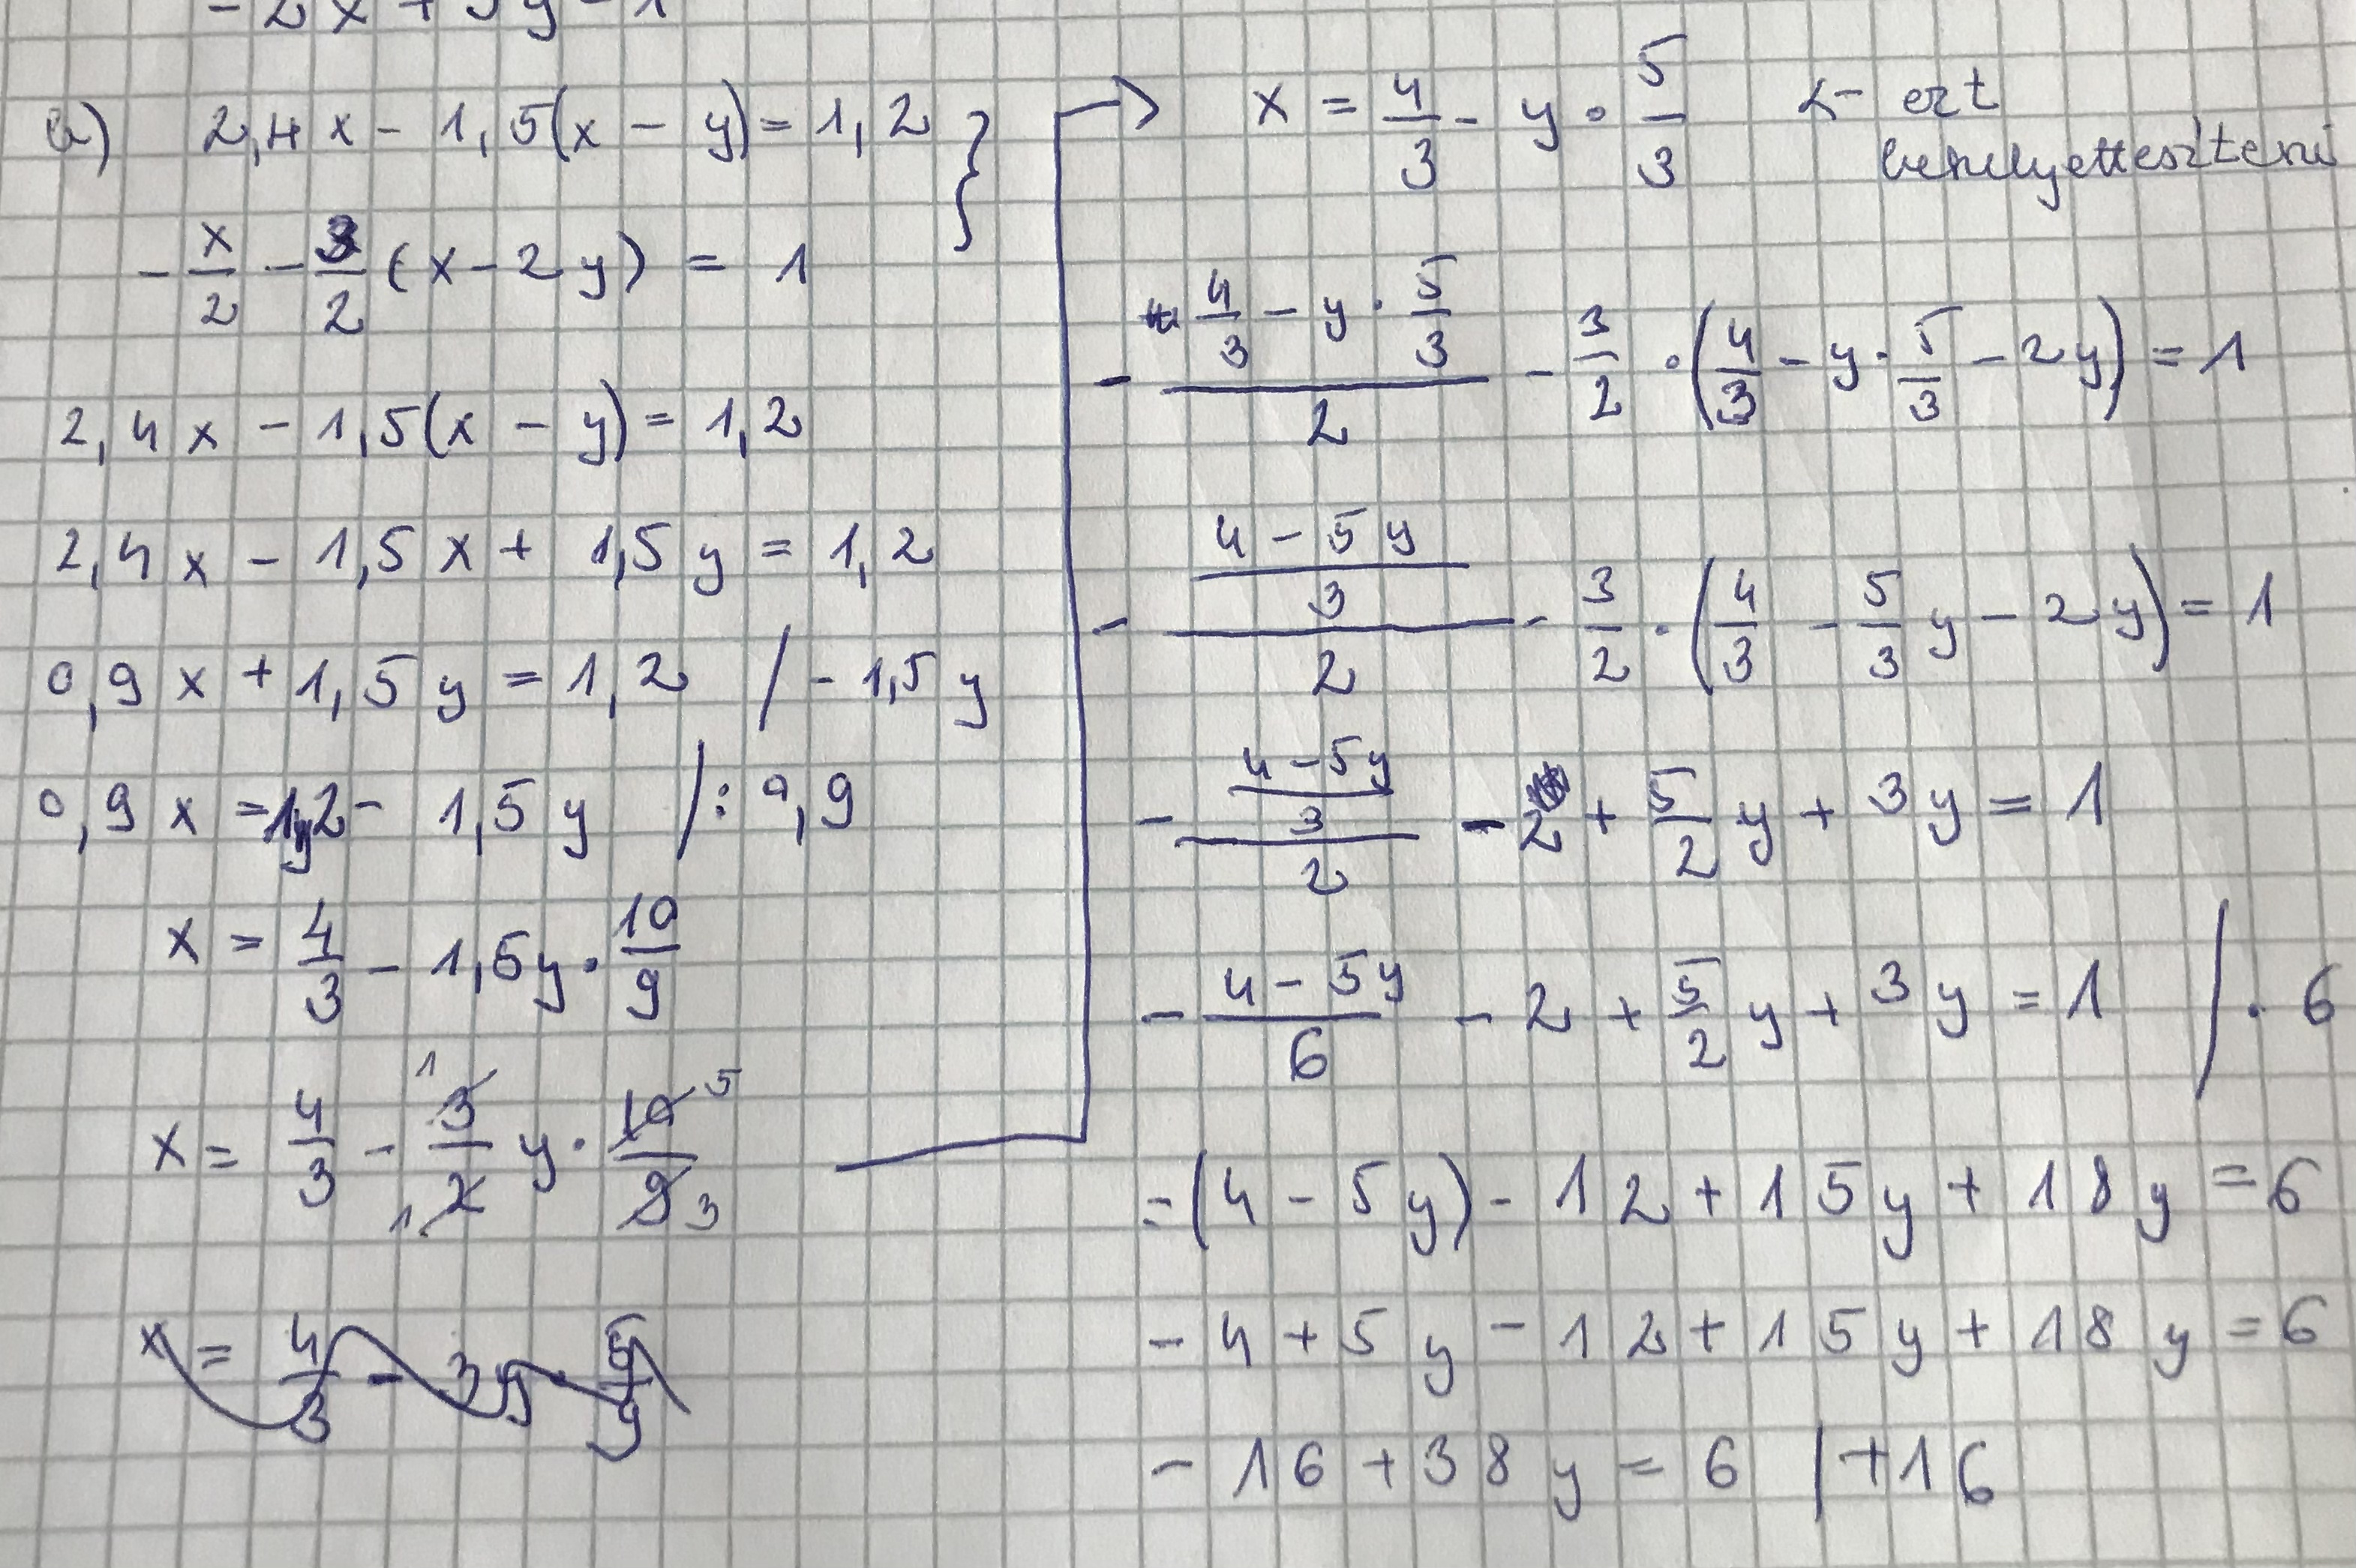 - 2x + 5y = 1
b) 2,4x - 1,5(x - y) = 1,2 }
- x/2 - 3/2 (x - 2y) = 1
2,4x - 1,5(x - y) = 1,2
2,4x - 1,5x + 1,5y = 1,2
0,9x + 1,5y = 1,2 / - 1,5y
0,9x = 1,2 - 1,5y / : 0,9
x = 4/3 - 1,5y · 10/9
x = 4/3 - 3/2 y · 10/9 1 1 5 3
x = 4/3 - 3y · 5/9
→ x = 4/3 - y · 5/3 <- ezt
behelyettesíteni
- (4/3 - y · 5/3)/2 - 3/2 · (4/3 - y · 5/3 - 2y) = 1
- ((4 - 5y)/3)/2 - 3/2 · (4/3 - 5/3 y - 2y) = 1
- ((4 - 5y)/3)/2 - 2 + 5/2 y + 3y = 1
- (4 - 5y)/6 - 2 + 5/2 y + 3y = 1 / · 6
= (4 - 5y) - 12 + 15y + 18y = 6
- 4 + 5y - 12 + 15y + 18y = 6
- 16 + 38y = 6 / + 16